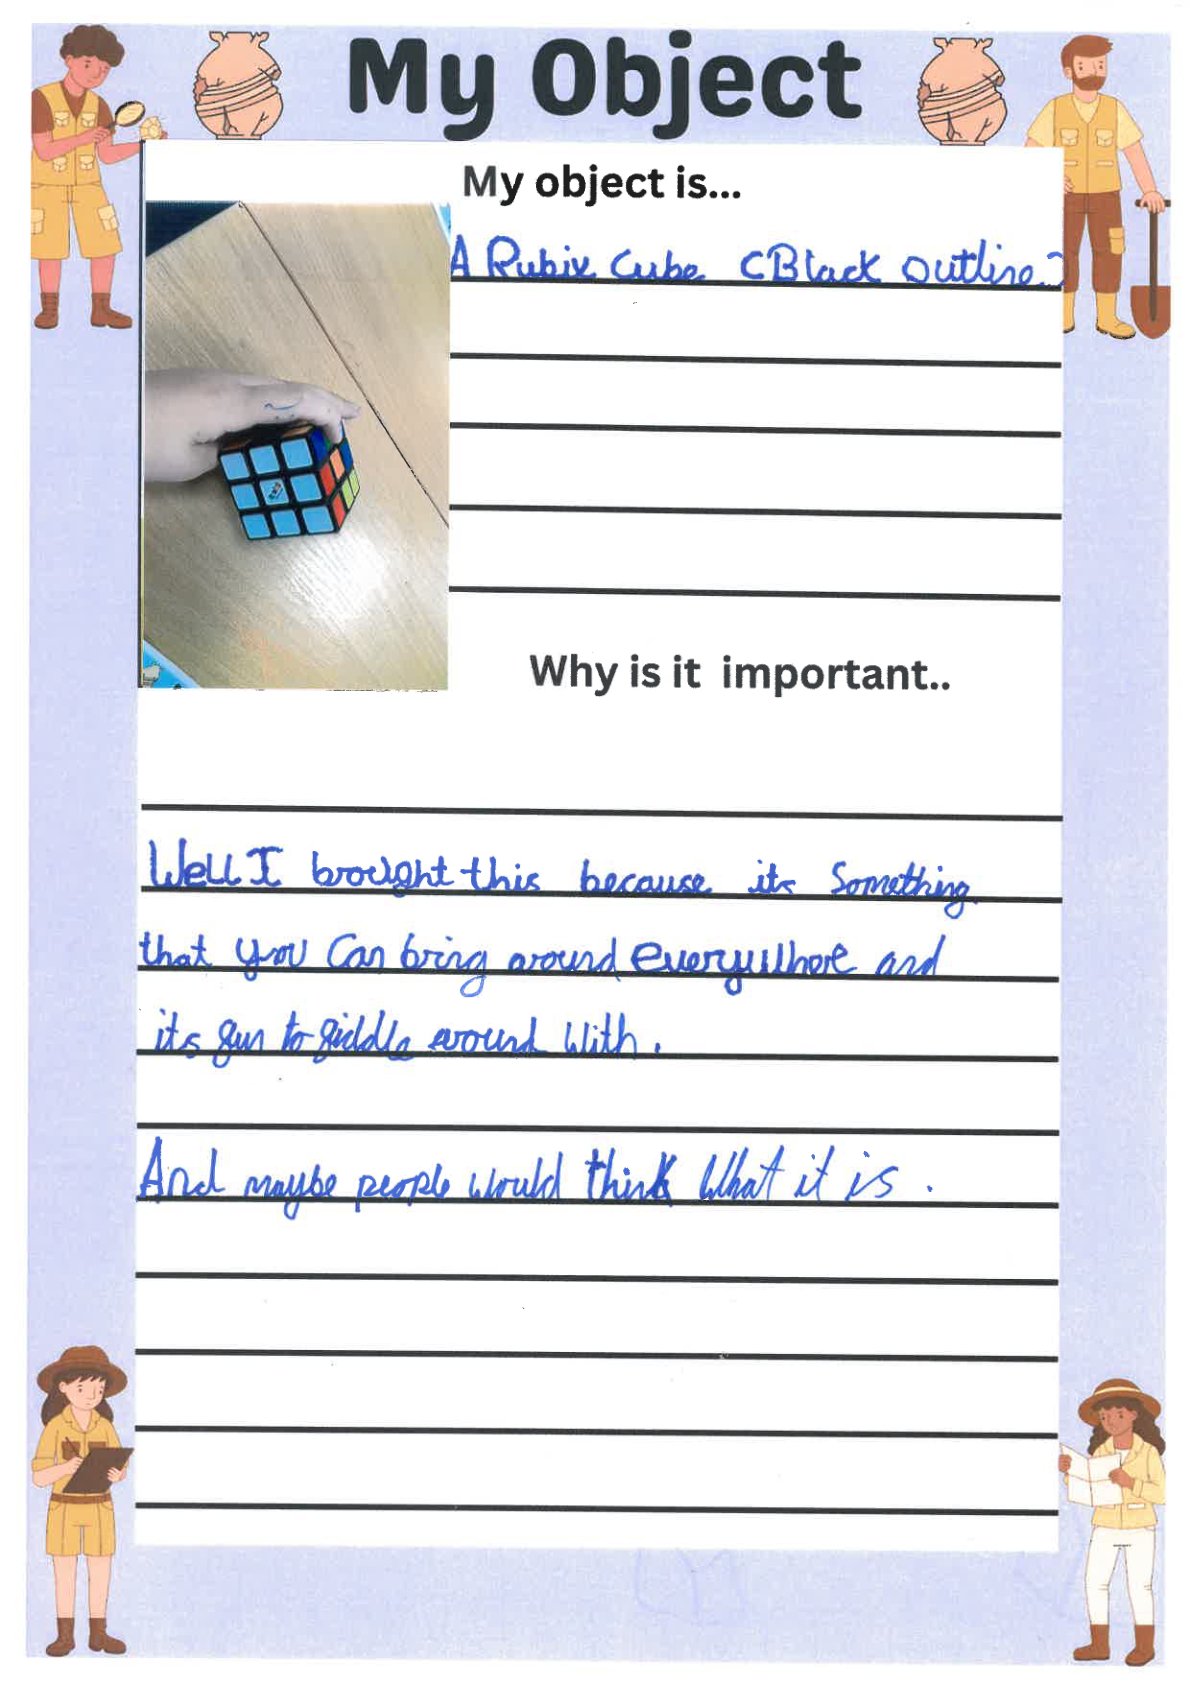 My Object
My object is...
A Rubix Cube (Black outline.)
Why is it important..
Well I brought this because its Something
that you Can bring around everywhere and
its fun to fiddle around With.
And maybe people would think What it is.